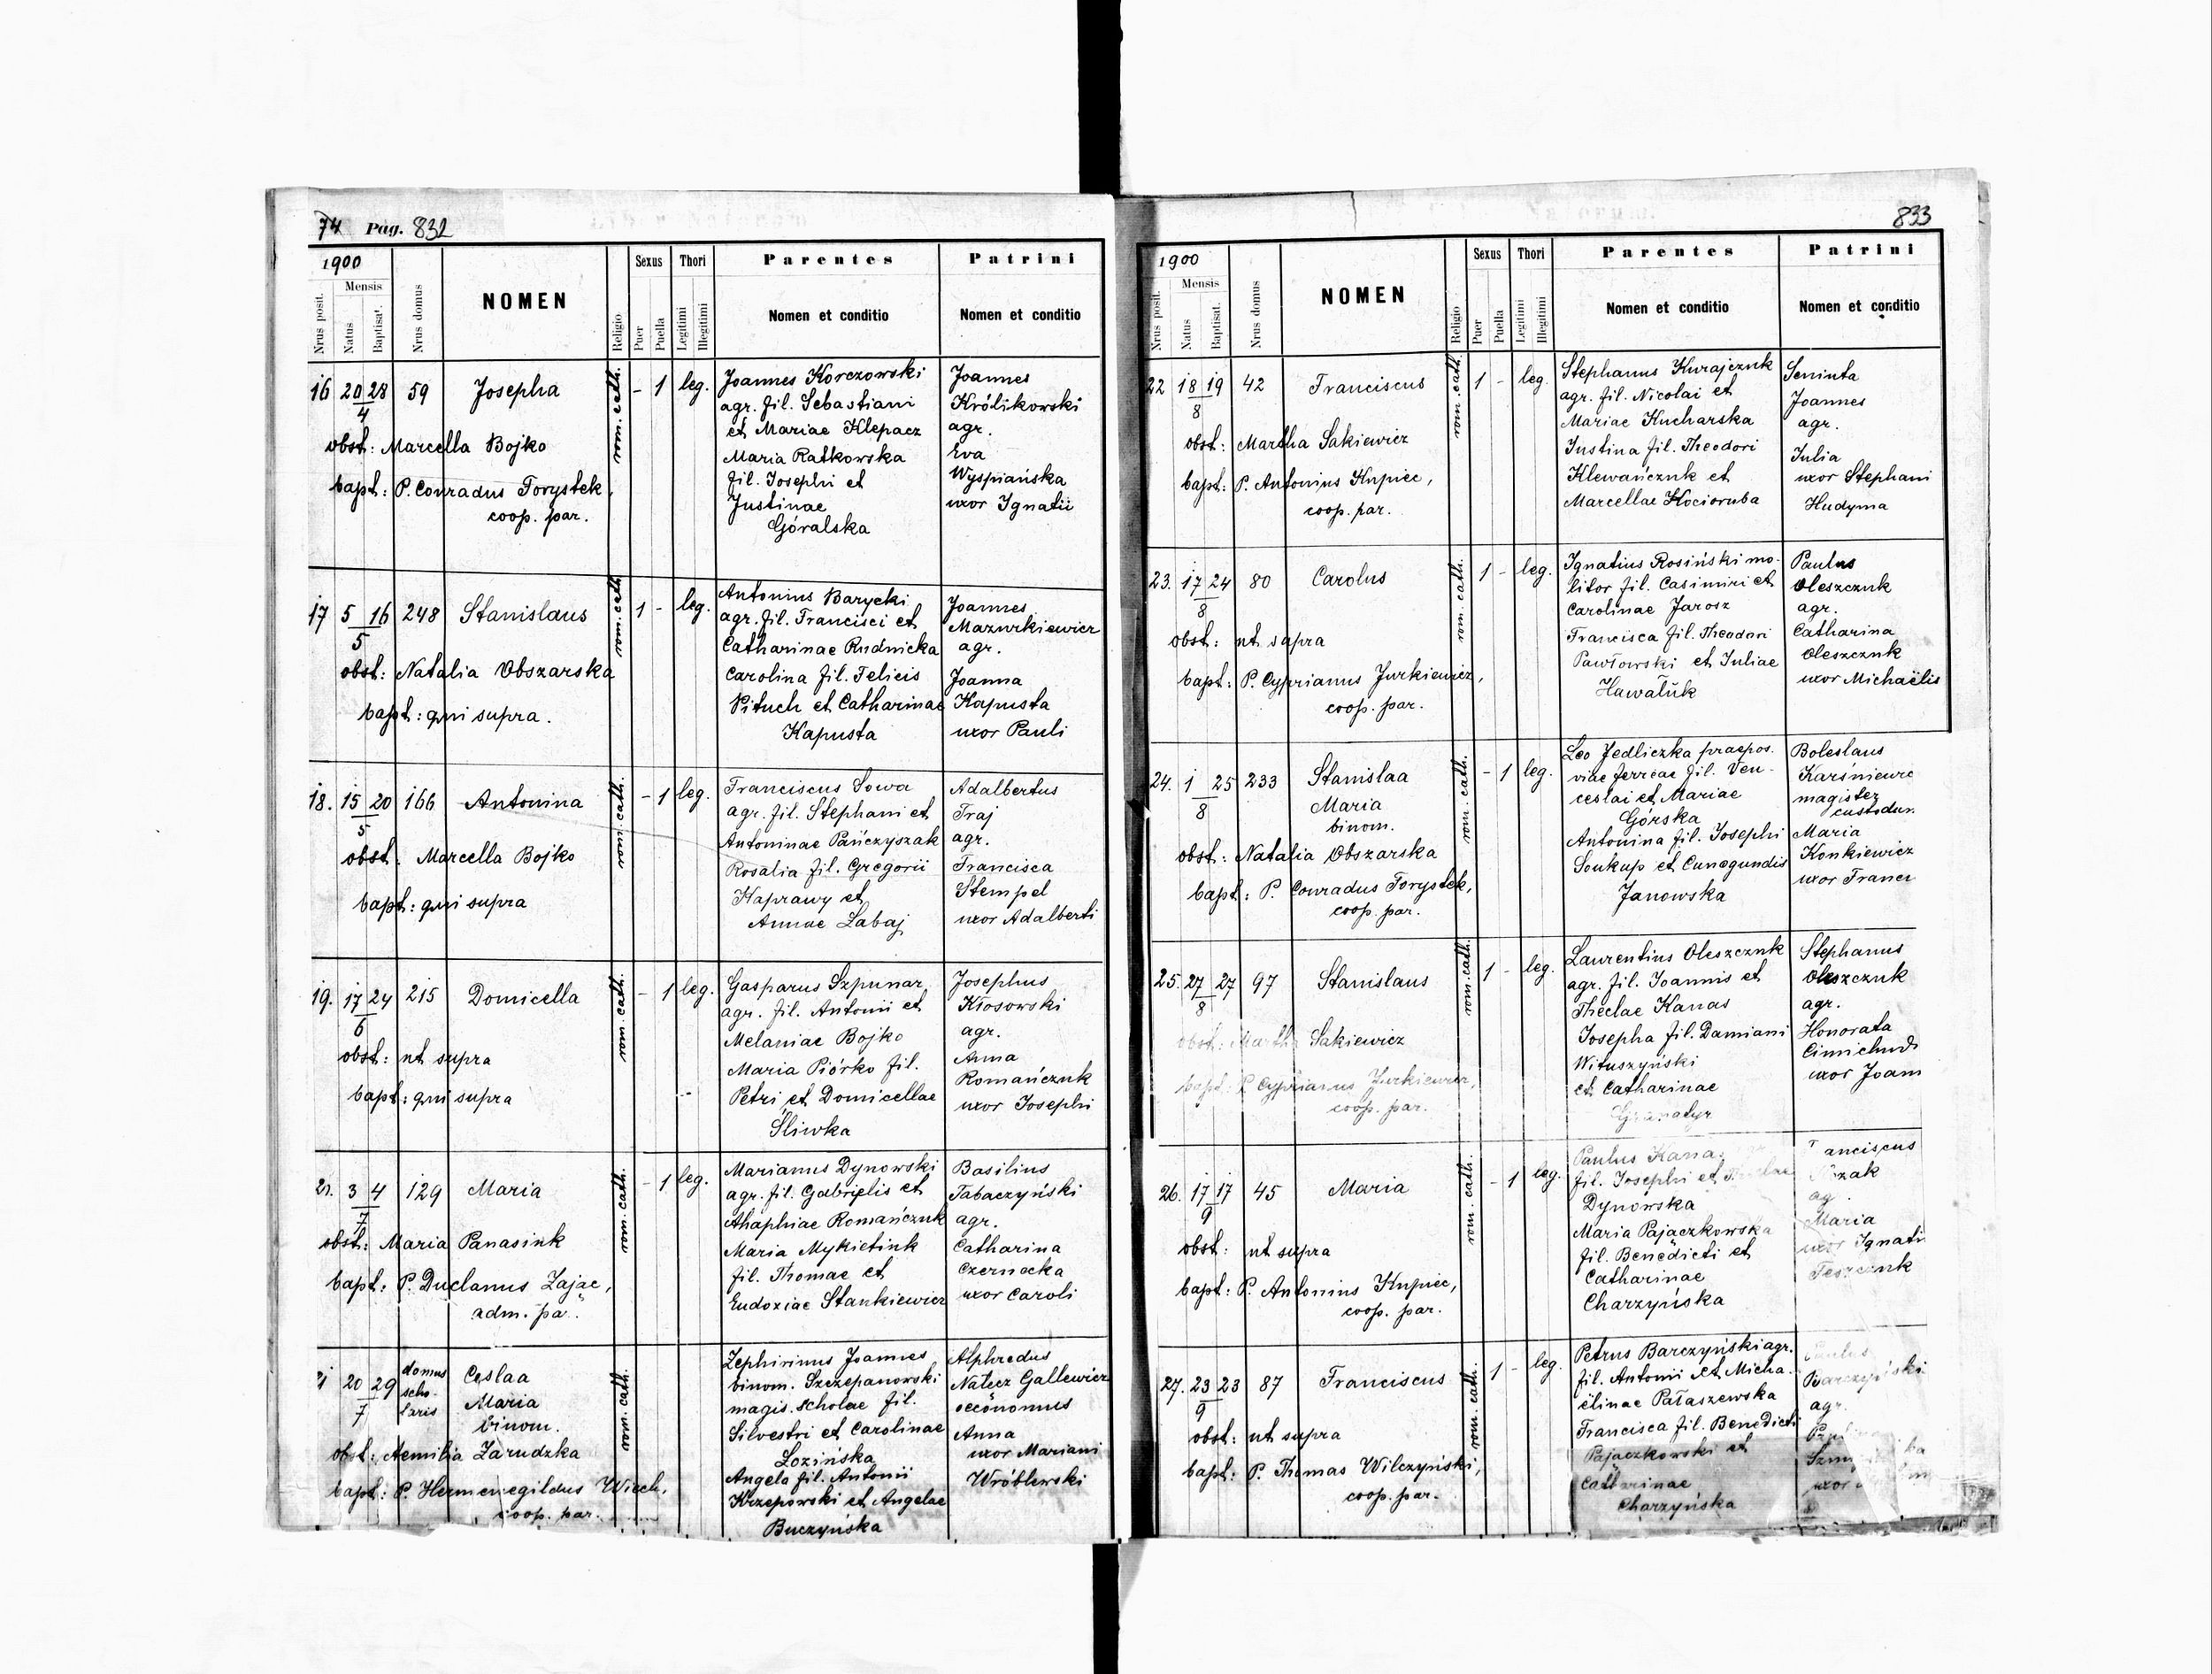 74 Pag. 832
1900
Mensis
Nrus posit.
Natus
Baptisat.
Nrus domus
NOMEN
Religio
Sexus
Puer
Puella
Thori
Legitimi
Illegitimi
Parentes
Nomen et conditio
Patrini
Nomen et conditio
16 20 28 59 Josepha rom. cath. - 1 leg.
4
obst: Marcella Bojko
bapt: P. Conradus Forystek,
coop. par.
Joannes Korczowski
agr. fil. Sebastiani
et Mariae Klepacz
Maria Ratkowska
fil. Josephi et
Justinae
Góralska
Joannes
Królikowski
agr.
Eva
Wyspiańska
uxor Ignatii
17 5 16 248 Stanislaus rom. cath. 1 - leg.
5
obst: Natalia Obszarska
bapt: qui supra.
Antonius Barycki
agr. fil. Francisci et
Catharinae Rudnicka
Carolina fil. Felicis
Pituch et Catharinae
Kapusta
Joannes
Mazurkiewicz
agr.
Joanna
Kapusta
uxor Pauli
18. 15 20 166 Antonina rom. cath. - 1 leg.
5
obst. Marcella Bojko
bapt: qui supra
Franciscus Sowa
agr. fil. Stephani et
Antoninae Pańczyszak
Rosalia fil. Gregorii
Kaprawy et
Annae Łabaj
Adalbertus
Traj
agr.
Francisca
Stempel
uxor Adalberti
19. 17 24 215 Domicella rom. cath. - 1 leg.
6
obst: ut supra
bapt: qui supra
Gasparus Szpunar
agr. fil. Antonii et
Melaniae Bojko
Maria Piórko fil.
Petri et Domicellae
Śliwka
Josephus
Kłosowski
agr.
Anna
Romańczuk
uxor Josephi
3 4 129 Maria rom. cath. - 1 leg.
7
obst: Maria Panasiuk
bapt: P. Duclanus Zając,
adm. pa..
Marianus Dynowski
agr. fil. Gabrielis et
Ahaphiae Romańczuk
Maria Mykietiuk
fil. Thomae et
Eudoxiae Stankiewicz
Basilius
Tabaczyński
agr.
Catharina
Czernecka
uxor Caroli
20 29 domus scho- laris Ceslaa rom. cath.
7
Maria
binom.
obst: Aemilia Zarudzka
bapt: P. Hermenegildus Wiech,
coop. par.
Zephirinus Joannes
binom. Szczepanowski
magis. scholae fil.
Silvestri et Carolinae
Łozińska
Angela fil. Antonii
Krzepowski et Angelae
Buczyńska
Alphredus
Nałecz Gallewicz
oeconomus
Anna
uxor Mariani
Wróblewski
833
1900
Mensis
Nrus posit.
Natus
Baptisat.
Nrus domus
NOMEN
Religio
Sexus
Puer
Puella
Thori
Legitimi
Illegitimi
Parentes
Nomen et conditio
Patrini
Nomen et conditio
22 18 19 42 Franciscus rom. cath. 1 - leg.
8
obst: Martha Sakiewicz
bapt: P. Antonius Kupiec,
coop. par.
Stephanus Kurajczuk
agr. fil. Nicolai et
Mariae Kucharska
Justina fil. Theodori
Klewańczuk et
Marcellae Kocioruba
Seniuta
Joannes
agr.
Julia
uxor Stephani
Hudyma
23. 17 24 80 Carolus rom. cath. 1 - leg.
8
obst: ut supra
bapt: P. Cyprianus Jurkiewicz,
coop. par.
Ignatius Rosiński mo-
litor fil. Casimiri et
Carolinae Jarosz
Francisca fil. Theodori
Pawłowski et Juliae
Hawaluk
Paulus
Oleszczuk
agr.
Catharina
Oleszczuk
uxor Michaëlis
24. 1 25 233 Stanislaa rom. cath. - 1 leg.
8
Maria
binom.
obst: Natalia Obszarska
bapt: P. Conradus Forystek,
coop. par.
Leo Jedliczka praepos.
viae ferreae fil. Ven-
ceslai et Mariae
Górska
Antonina fil. Josephi
Soukup et Cunegundis
Janowska
Boleslaus
Karśniewic
magister
custodum
Maria
Konkiewicz
uxor Franci
25. 27 27 97 Stanislaus rom. cath. 1 - leg.
8
obst: Martha Sakiewicz
bapt: P Cyprianus Jurkiewicz,
coop. par.
Laurentius Oleszczuk
agr. fil. Joannis et
Theclae Kanas
Josepha fil. Damiani
Wituszyński
et Catharinae
Stephanus
Oleszczuk
agr.
Honorata
uxor Joann
26. 17 17 45 Maria rom. cath. - 1 leg.
9
obst: ut supra
bapt: P. Antonius Kupiec,
coop. par.
Paulus Kana
fil. Josephi et
Dynowska
Maria Pajączkowska
fil. Benedicti et
Catharinae
Charzyńska
anciscus
zak
ag
Maria
uxor Ignati
27. 23 23 87 Franciscus rom. cath. 1 - leg.
9
obst: ut supra
bapt: P. Thomas Wilczyński,
coop. par.
Petrus Barczyński agr.
fil. Antonii et Micha-
ëlinae Pałaszewska
Francisca fil. Benedicti
Pajączkowski et
Catharinae
Charzyńska
Paulus
Barczyński
agr.
uxor